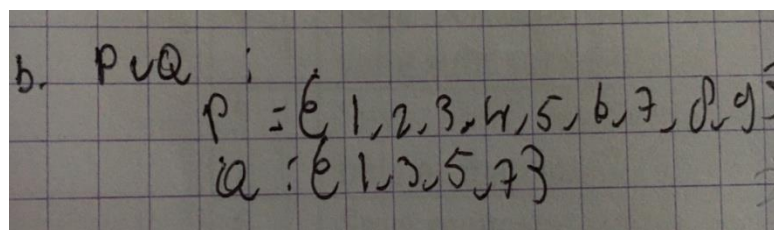 b. P∪Q :
P = { 1, 2, 3, 4, 5, 6, 7, 8, 9 }
Q : { 1, 3, 5, 7 }